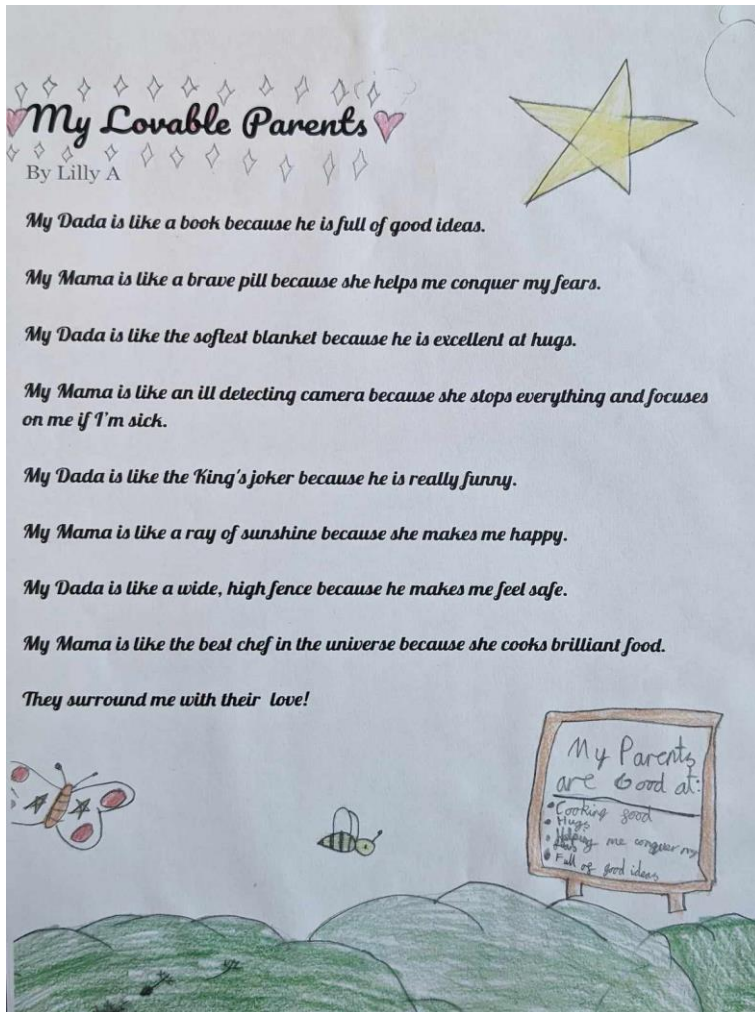 My Lovable Parents
By Lilly A
My Dada is like a book because he is full of good ideas.
My Mama is like a brave pill because she helps me conquer my fears.
My Dada is like the softest blanket because he is excellent at hugs.
My Mama is like an ill detecting camera because she stops everything and focuses
on me if I'm sick.
My Dada is like the King's joker because he is really funny.
My Mama is like a ray of sunshine because she makes me happy.
My Dada is like a wide, high fence because he makes me feel safe.
My Mama is like the best chef in the universe because she cooks brilliant food.
They surround me with their love!
My Parents
are Good at:
Cooking good
Hugs
Helping me conquer my
Full of good ideas